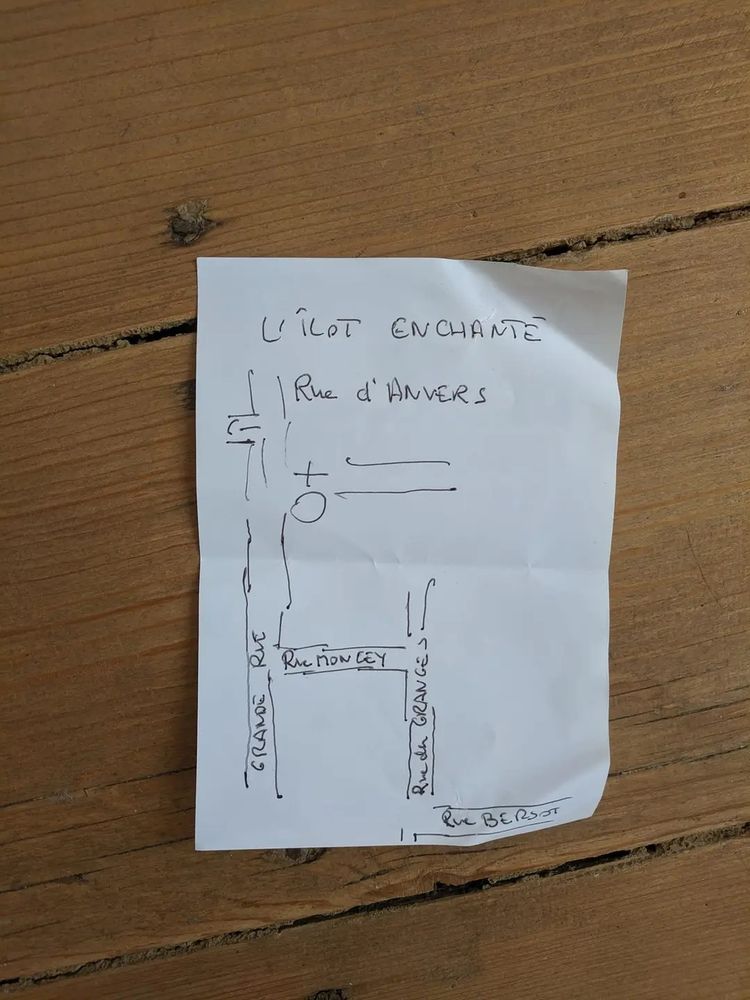 L'ÎLOT ENCHANTÉ
Rue d'ANVERS
GRANDE RUE
Rue MONCEY
Rue des GRANGES
Rue BERSOT